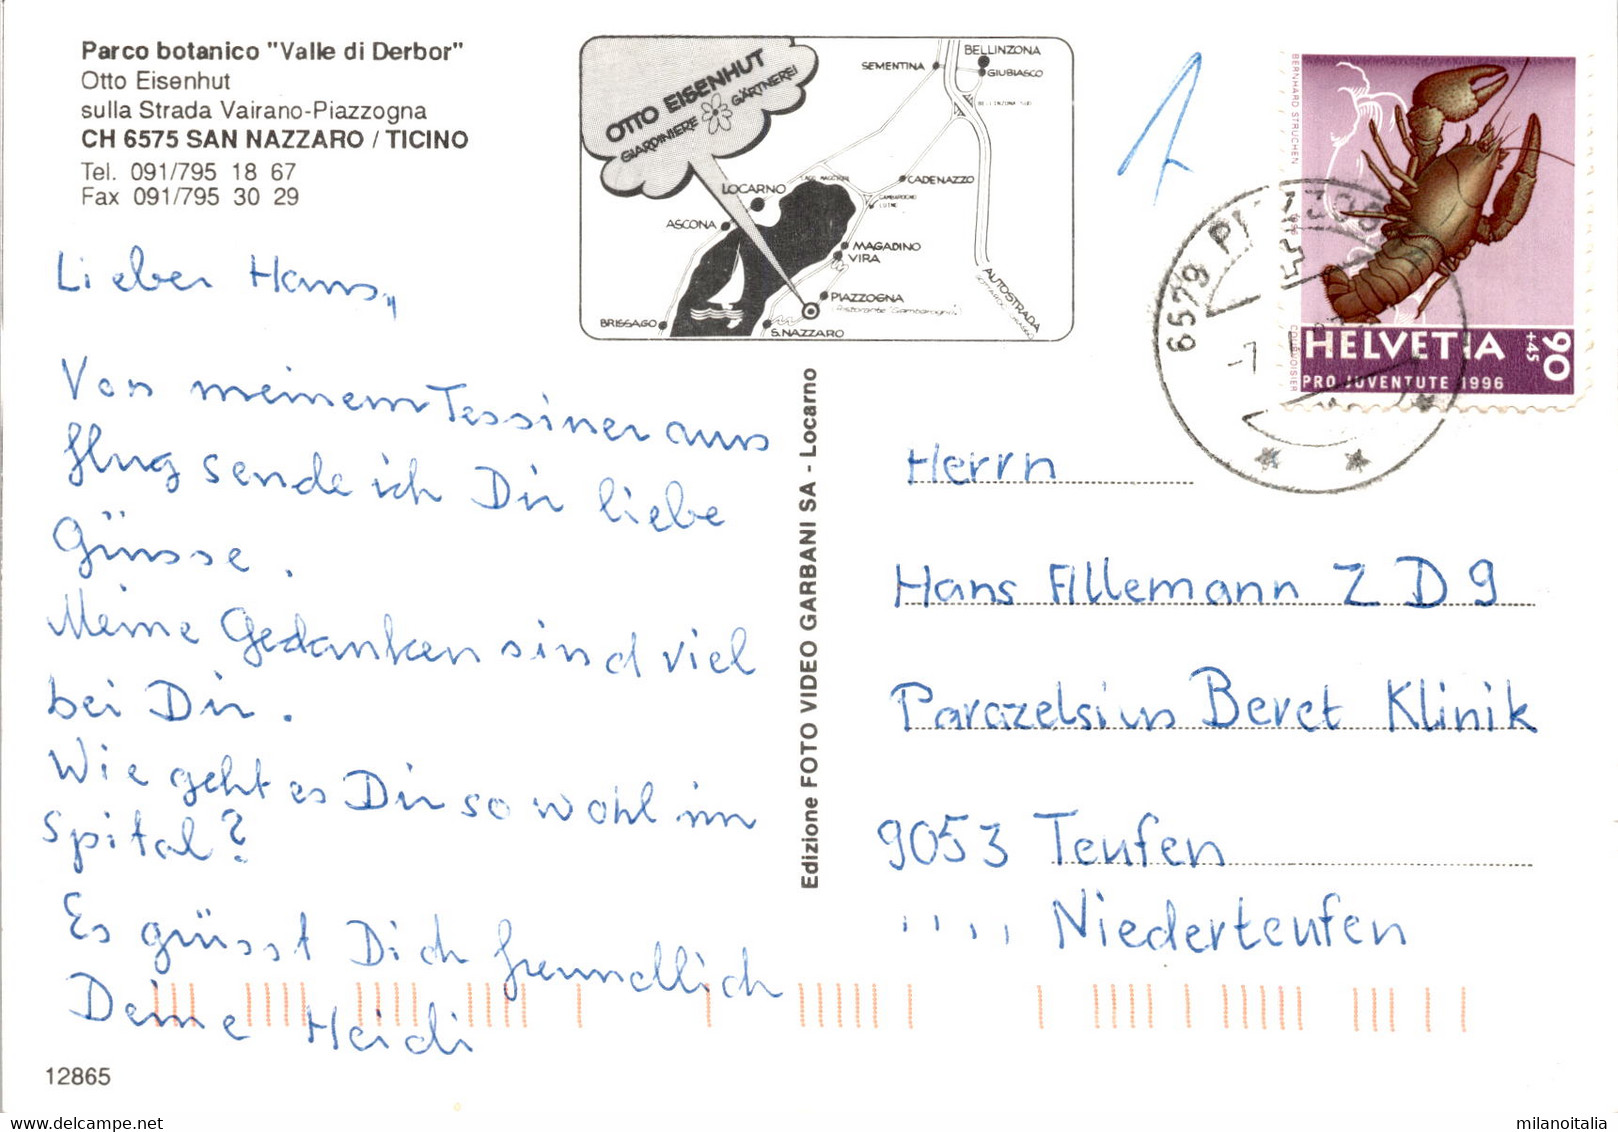 Parco botanico "Valle di Derbor"
Otto Eisenhut
sulla Strada Vairano-Piazzogna
CH 6575 SAN NAZZARO / TICINO
Tel. 091/795 18 67
Fax 091/795 30 29
OTTO EISENHUT
GIARDINIERE GÄRTNEREI
BELLINZONA
SEMENTINA
GIUBIASCO
BELLINZONA SUD
CADENAZZO
LOCARNO
ASCONA
MAGADINO
VIRA
PIAZZOGNA
BRISSAGO
S.NAZZARO
AUTOSTRADA
BERNHARD STRUCHEN
1996
COURVOISIER
HELVETIA
90
+45
PRO JUVENTUTE 1996
6579
-7
1
Lieber Hans,,
Von meinem Tessiner aus
flug sende ich Dir liebe
Grüsse.
Meine Gedanken sind viel
bei Dir.
Wie geht es Dir so wohl im
Spital?
Es grüsst Dich freundlich
Deine Heidi
12865
Edizione FOTO VIDEO GARBANI SA - Locarno
Herrn
Hans Allemann Z D 9
Parazelsius Beret Klinik
9053 Teufen
Niederteufen
milanoitalia